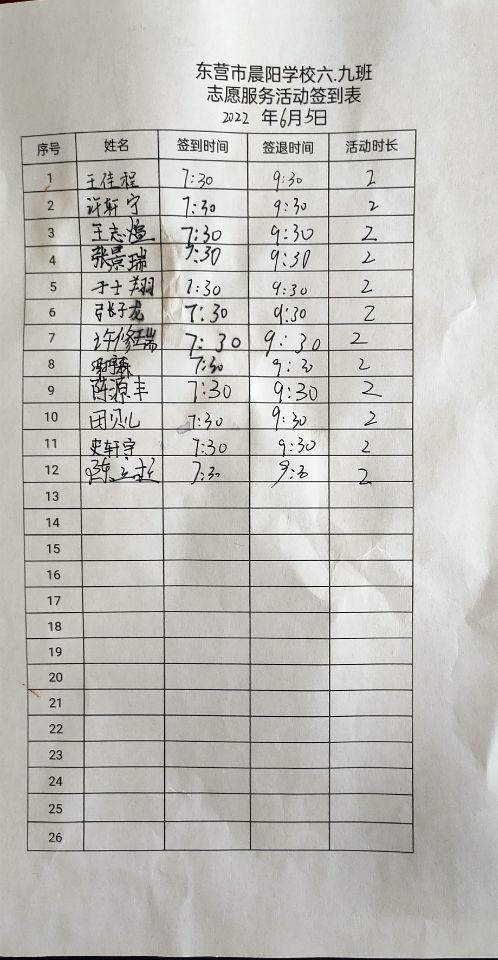 东营市晨阳学校六.九班
志愿服务活动签到表
2022 年6月5日
序号 姓名 签到时间 签退时间 活动时长
1 王佳程 7:30 9:30 2
2 许轩宁 7:30 9:30 2
3 王志煜 7:30 9:30 2
4 张景瑞 7:30 9:30 2
5 于士翔 7:30 9:30 2
6 张子龙 7:30 9:30 2
7 许修瑞 7:30 9:30 2
8 7:30 9:30 2
9 陈源丰 7:30 9:30 2
10 田贝儿 7:30 9:30 2
11 史轩宇 7:30 9:30 2
12 7:30 9:30 2
13
14
15
16
17
18
19
20
21
22
23
24
25
26